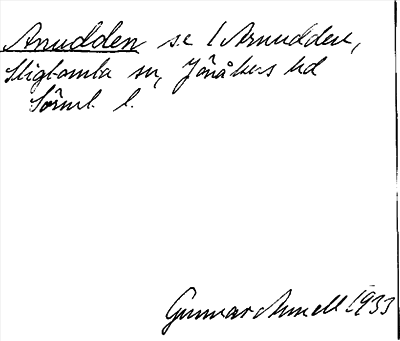 Anudden se 1 Arnudden,
Stigtomta sn, Jönåkers hd
Sörml. l.
Gunnar Arnell 1933